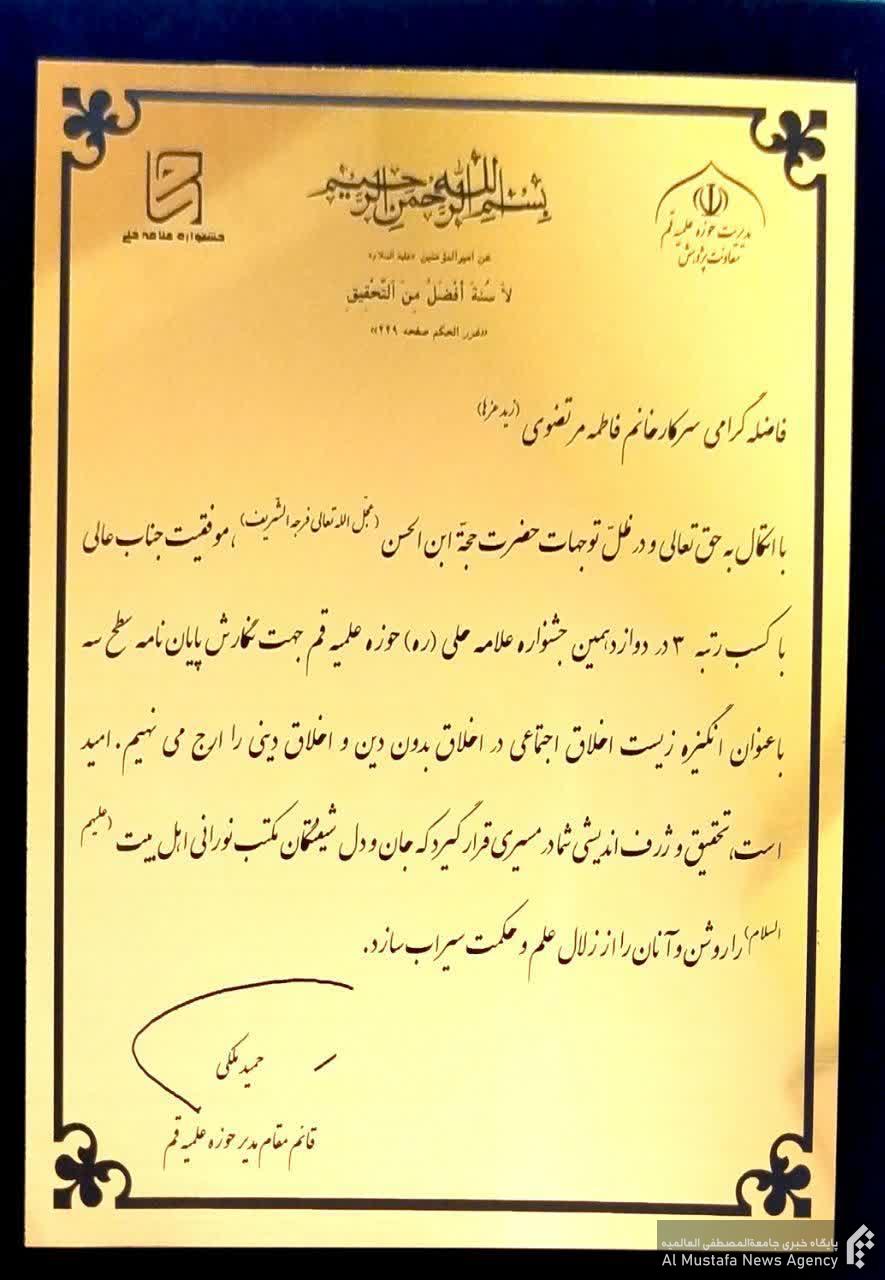 جشنواره علامه حلی
بسم الله الرحمن الرحیم
مدیریت حوزه علمیه قم
معاونت پژوهش
عن امیرالمؤمنین «علیه السلام»
لا سُنةَ أفْضَلُ مِنَ اَلتَّحْقیقِ
«غرر الحکم صفحه ۴۴۹»
فاضله گرامی سرکار خانم فاطمه مرتضوی (زید عزها)
با اتکال به حق تعالی و در ظلّ توجهات حضرت حجة ابن الحسن (عجّل الله تعالی فرجه الشریف)، موفقیت جناب عالی
با کسب رتبه ۳ در دوازدهمین جشنواره علامه حلی (ره) حوزه علمیه قم جهت نگارش پایان نامه سطح سه
با عنوان انگیزه زیست اخلاق اجتماعی در اخلاق بدون دین و اخلاق دینی را ارج می نهیم. امید
است، تحقیق و ژرف اندیشی شما در مسیری قرار گیرد که جان و دل شیفتگان مکتب نورانی اهل بیت (علیهم
السلام) را روشن و آنان را از زلال علم و حکمت سیراب سازد.
حمید ملکی
قائم مقام مدیر حوزه علمیه قم
پایگاه خبری جامعةالمصطفی العالمیه
Al Mustafa News Agency